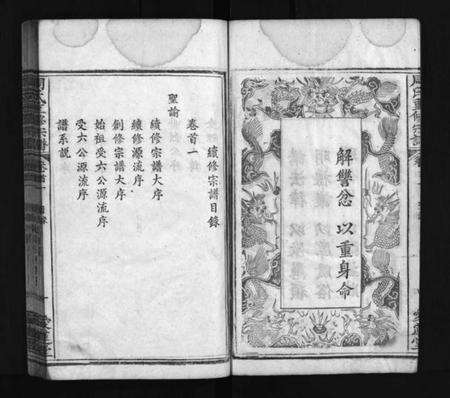 解讐忿以重身命
續修宗譜目錄
卷首一
聖諭
續修宗譜大序
續修源流序
創修宗譜大序
始祖受六公源流序
受六公源流序
譜系說